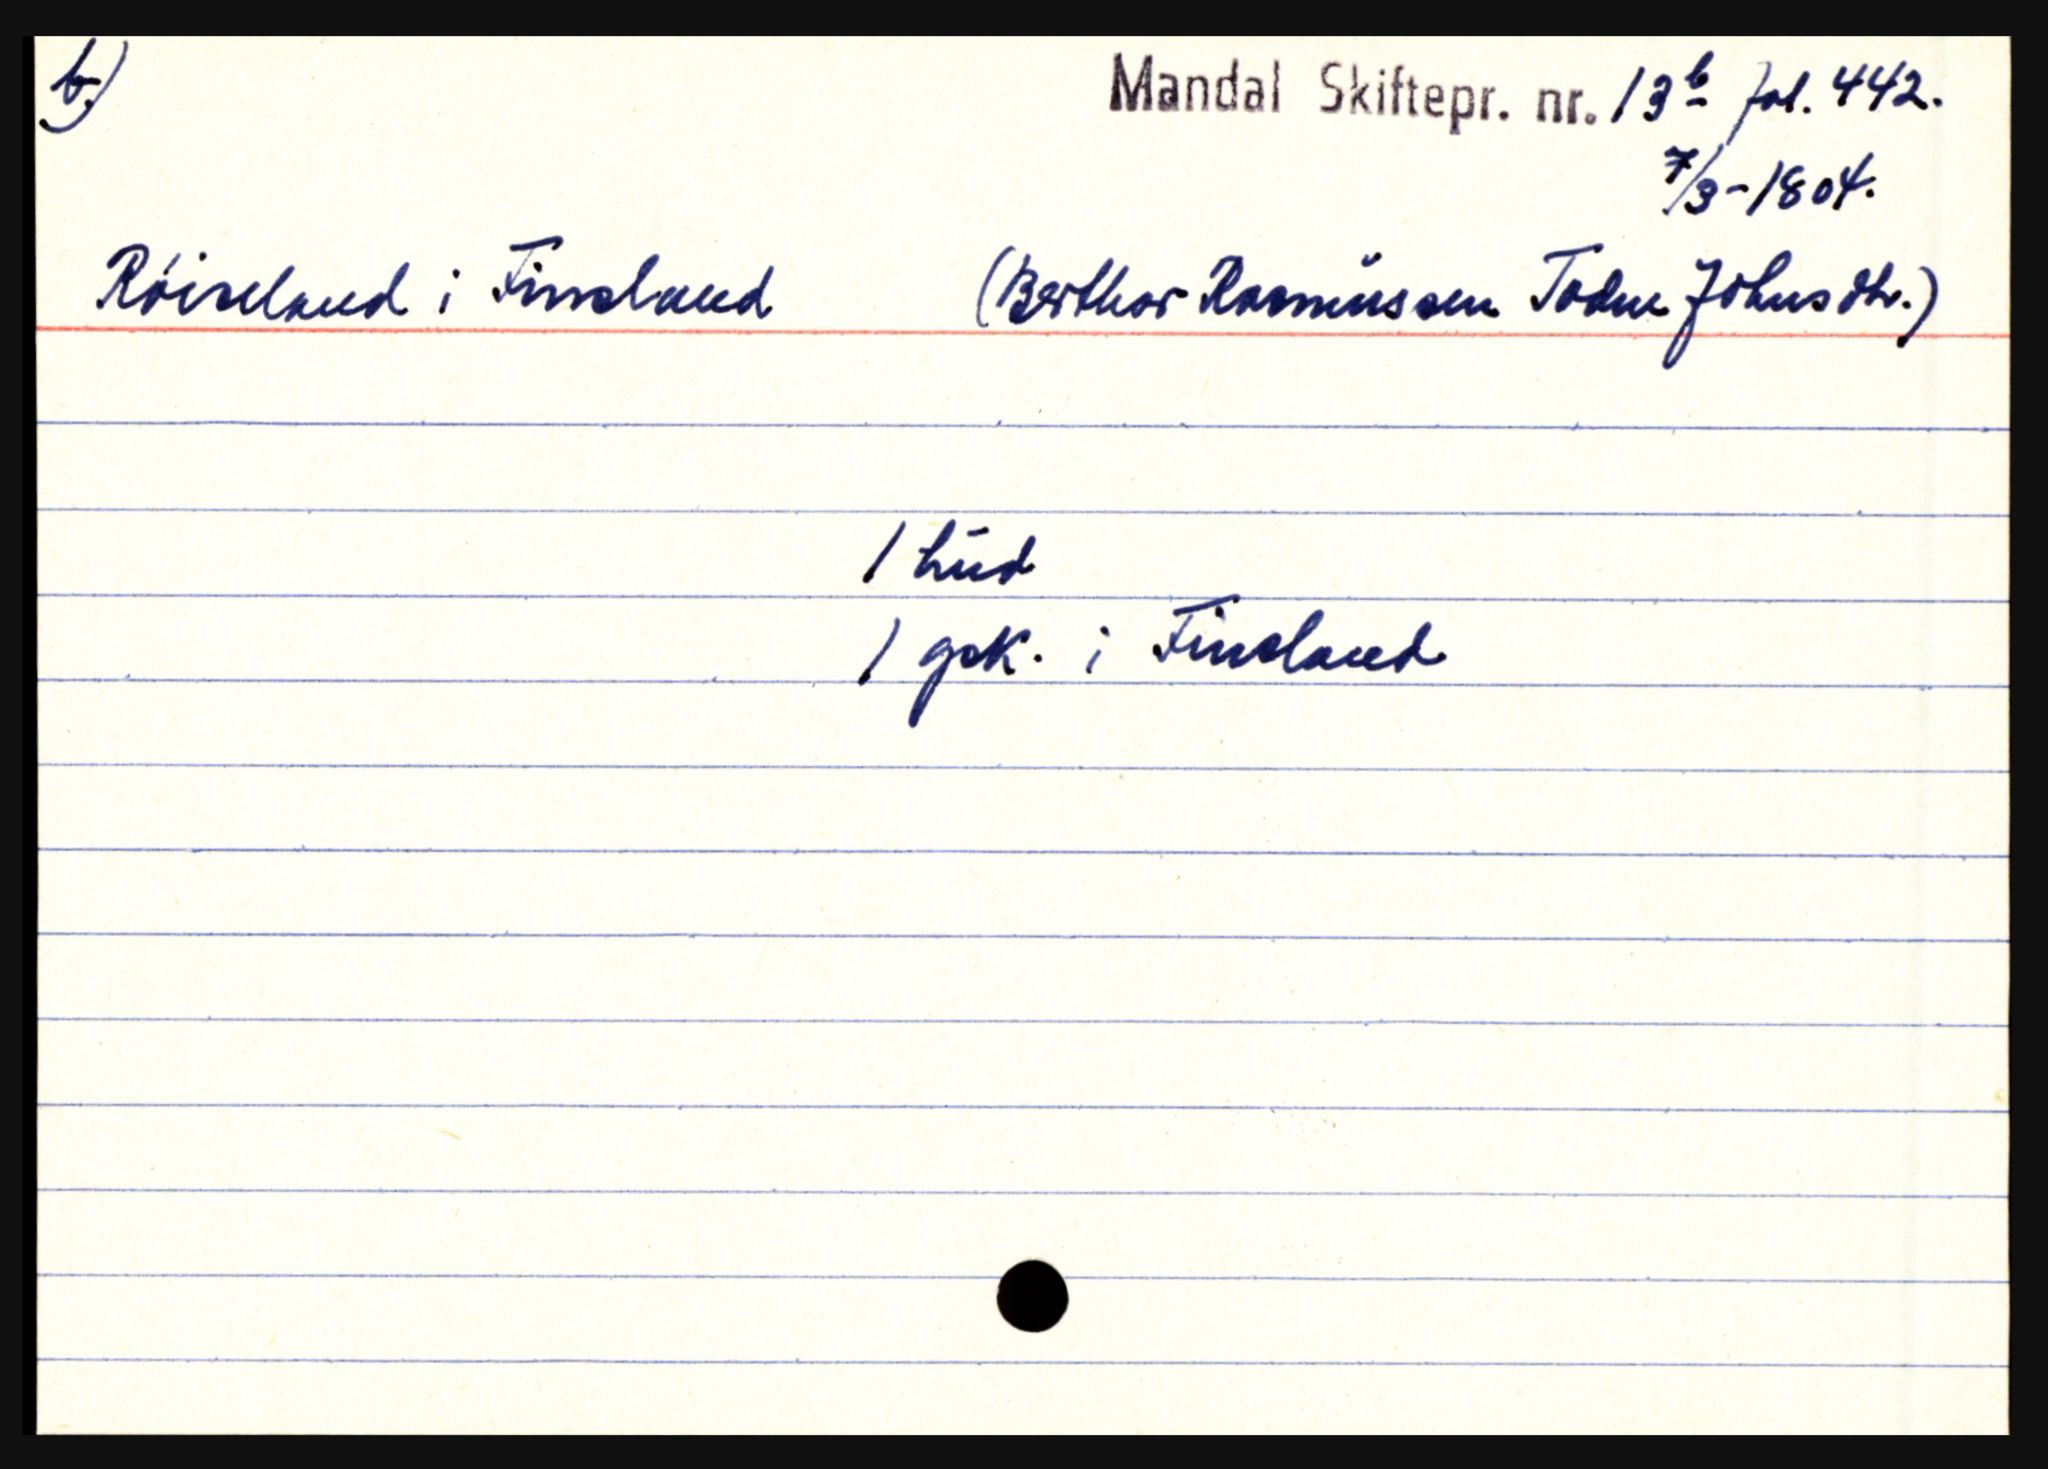 b)
Mandal Skiftepr. nr. 13b fol. 442.
7/3-1804.
Röiseland i Finsland (Berthor Rasmüssen Todne Johnsdtr.)
1 hud
1 gsk. i Finsland